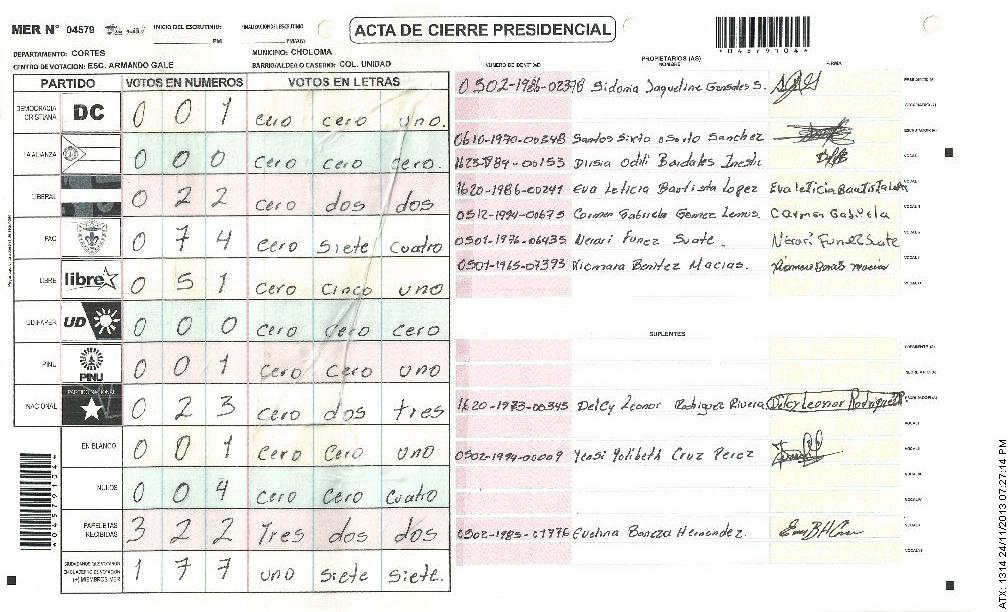 MER N° 04579
INICIO DEL ESCRUTINIO:
PM
ACTA DE CIERRE PRESIDENCIAL
045791044
DEPARTAMENTO: CORTES
MUNICIPIO: CHOLOMA
CENTRO DE VOTACION: ESC. ARMANDO GALE
BARRIO/ALDEA O CASERIO: COL. UNIDAD
PARTIDO VOTOS EN NUMEROS VOTOS EN LETRAS
DEMOCRACIA CRISTIANA DC 0 0 1 cero cero uno.
LA ALIANZA 0 0 0 cero cero cero.
LIBERAL 0 2 2 cero dos dos
PAC 0 7 4 cero siete cuatro
LIBRE libre 0 5 1 cero cinco uno
UD-FAPER UD 0 0 0 cero cero cero
PINU PINU 0 0 1 cero cero uno
NACIONAL PARTIDO NACIONAL 0 2 3 cero dos tres
EN BLANCO 0 0 1 cero cero uno
NULOS 0 0 4 cero cero cuatro
PAPELETAS RECIBIDAS 3 2 2 Tres dos dos
CIUDADANOS QUE VOTARON (+) MIEMBROS MER 1 7 7 uno siete siete.
045791044
NUMERO DE IDENTIDAD
PROPIETARIOS (AS)
NOMBRE
FIRMA
0502-1986-02378 Sidonia Jaqueline Gonsales S.
0610-1970-00348 Santos Sixto Osorto Sanchez
00153
1620-1986-00241 Eva Leticia Bautista Lopez Eva leticia Bautista
0512-1994-00675 Carmen Gabriela Gomez Lemus. Carmen Gabriela
0501-1976-06435 Nerari Funez Suate. Nerari Funez Suate
0501-1965-07393 Xiomara Benitez Macias.
SUPLENTES
1620-1973-00345 Delcy Leonor Rodriguez Rivera Delcy Leonor Rodriguez R.
0502-1994-00009 Yensi Yolibeth Cruz Perez
0502-1985-01776 Evelina Hernandez.
ATX: 1314 24/11/2013 07:27:14 PM